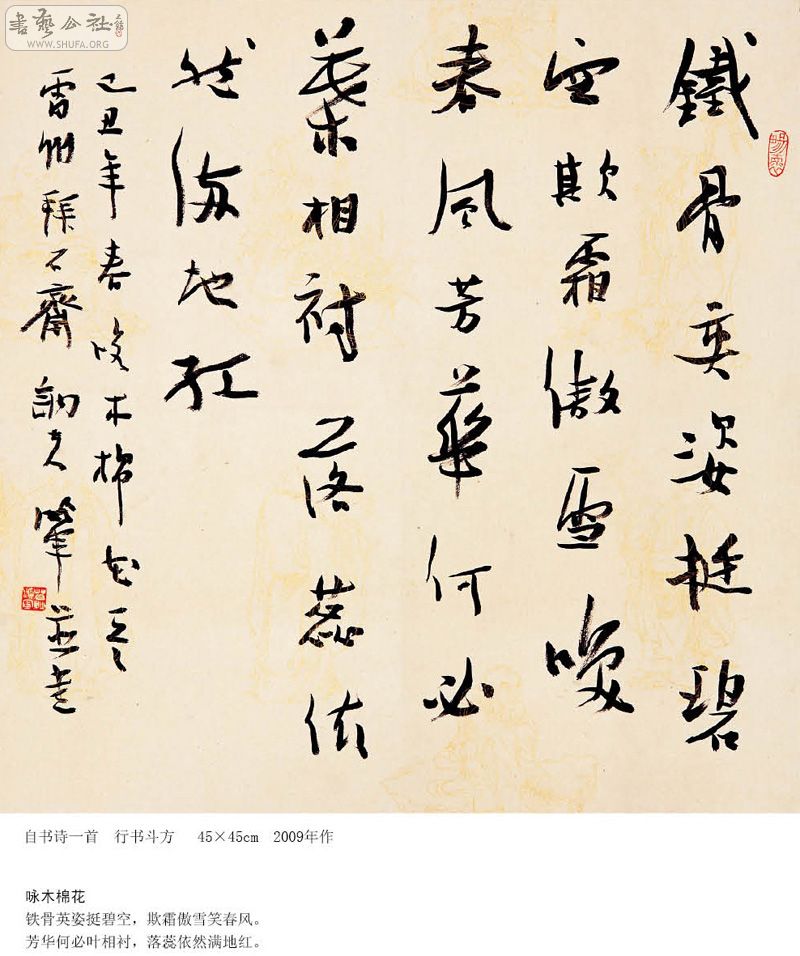 書藝公社
WWW.SHUFA.ORG
鐵骨英姿挺碧
空欺霜傲雪唤
春風芳華何必
葉相衬落蕊依
然满地红
己丑年春咏木棉花
雷州拜石齋訥夫肇並書
自书诗一首 行书斗方 45×45cm 2009年作
咏木棉花
铁骨英姿挺碧空，欺霜傲雪笑春风。
芳华何必叶相衬，落蕊依然满地红。